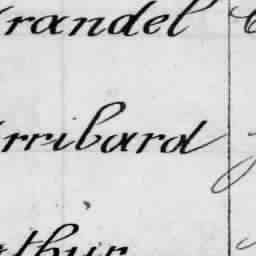 randel
rribard
thur